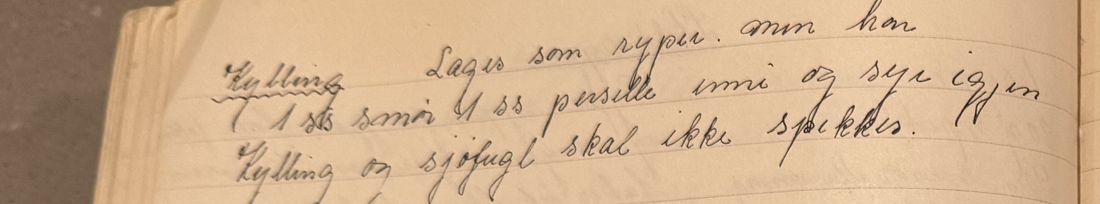 Kylling Lages som ryper. men han
1 ss smør 1 ss perselle inni og syr igjen
Kylling og sjøfugl skal ikke spekkes.